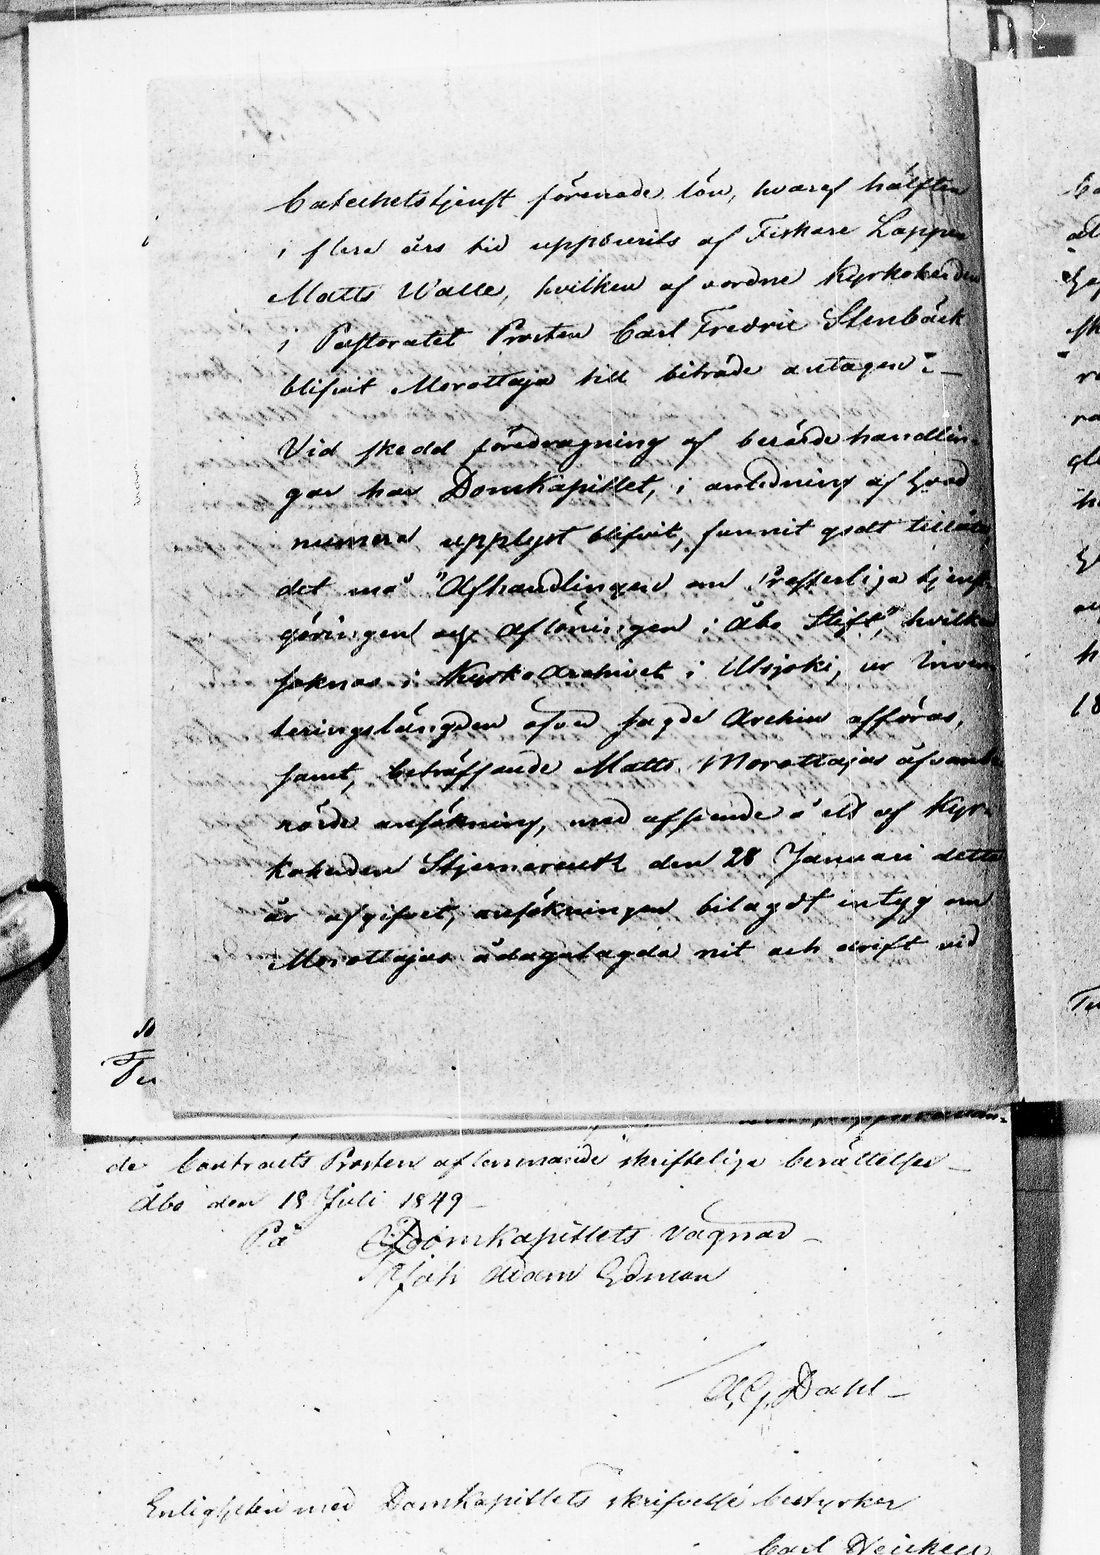 Catechetstjenst förenade lön, hvaraf hälften
i flere års tid uppburits af Fiskare Lappen
Matts Walle, hvilken af vordne Kyrkoherden
i Pastoratet Prosten Carl Fredric Stenbäck
blifvit Morottaja till biträde antagen:_
Vid skedd föredragning af berörde handlin-
gar har Domkapitlet, i anledning af hvad
numera upplyst blifvit, funnit godt tillåta,
det må "Afhandlingen om Presterliga tjenst-
göringen och aflöningen i Åbo Stift", hvilken
saknas i Kyrko Archivet i Utsjoki, ur Inven-
teringslängden öfver sagde Archiv afföras,
samt, beträffande Matts Morottajas ofvanbe-
rörde ansökning, med afseende å ett af Kyr-
koherden Stjernereutz den 28 Januari detta
år afgifvet, ansökningen bilagdt intyg om
Morottajas ådagalagda nit och drift vid
de Contracts Prosten aflemnande skriftelige berättelser_
Åbo den 18 Juli 1849_
På Domkapitlets vägnar_
Joh Adam Edman
A. G. Dahl_
Enligheten med Domkapitlets skrifvelse bestyrker
Carl